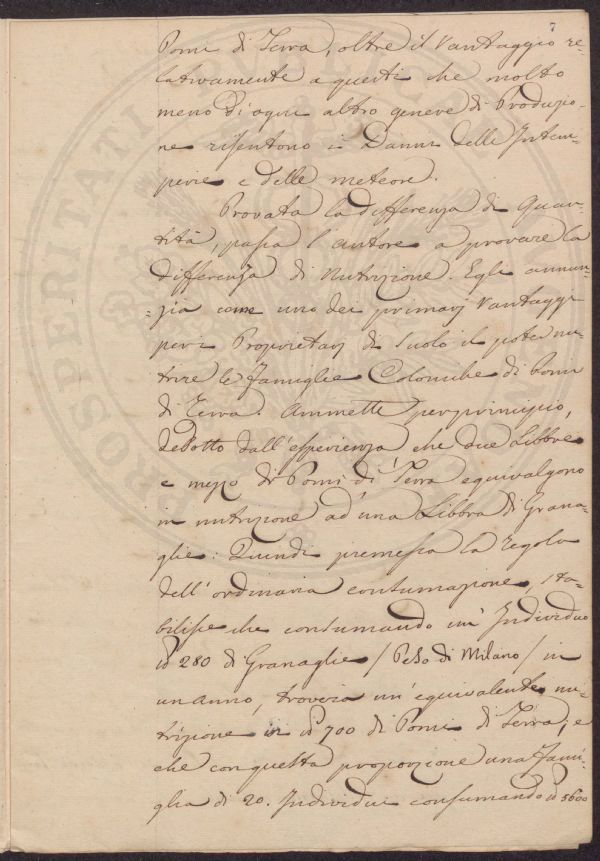 7
Pomi di Terra, oltre il Vantaggio re-
lativamente a questi che molto
meno d'ogni altro genere di Produzio-
ne risentono i Danni delle Intem-
perie e delle meteore.
Provata la differenza di Quan-
tità, passa l'autore a provare la
differenza di Nutrizione. Egli annun-
=zia come uno dei primarj Vantaggi
peri Proprietarj di Suolo il poter nu-
trire le Famiglie Coloniche di Pomi
di Terra. Ammette per principio,
dedotto dall'esperienza che due Libbre
e mezzo di Pomi di Terra equivalgono
in nutrizione ad una Libbra di Grana-
glie: Quindi premessa la regola
dell'ordinaria consumazione, sta-
bilisce che consumando un Individuo
lb 280 di Granaglie / Peso di Milano / in
un anno, troverà un'equivalente nu-
trizione in lb 700 di Pomi di Terra; e
che con questa proporzione una Fami-
glia di 20. Individui consumando lb 5600
PROSPERITATI PUBLICAE